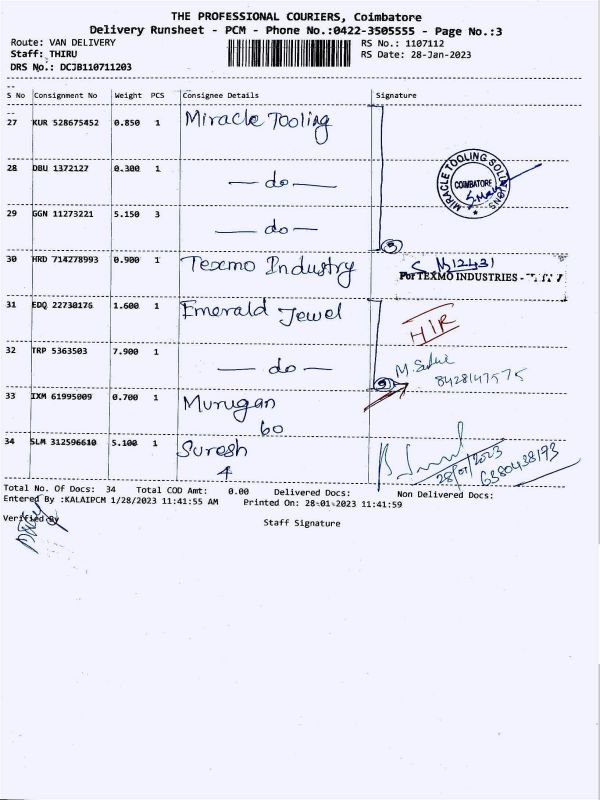 THE PROFESSIONAL COURIERS, Coimbatore
Delivery Runsheet - PCM - Phone No.:0422-3505555 - Page No.:3
Route: VAN DELIVERY RS No.: 1107112
Staff: THIRU RS Date: 28-Jan-2023
DRS No.: DCJB110711203
S No Consignment No Weight PCS Consignee Details Signature
27 KUR 528675452 0.850 1 Miracle Tooling
28 DBU 1372127 0.300 1 — do —
MIRACLE TOOLING SOLUTIONS
COIMBATORE
29 GGN 11273221 5.150 3 — do —
3
30 HRD 714278993 0.900 1 Texmo Industry
For TEXMO INDUSTRIES -
31 EDQ 22730176 1.600 1 Emerald Jewel
HIR
32 TRP 5363503 7.900 1 — do —
8428147575
33 IXM 61995009 0.700 1 Murugan
60
34 SLM 312596610 5.100 1 Suresh
4
28/01/2023
6380438193
Total No. Of Docs: 34 Total COD Amt: 0.00 Delivered Docs: Non Delivered Docs:
Entered By :KALAIPCM 1/28/2023 11:41:55 AM Printed On: 28-01-2023 11:41:59
Verified By Staff Signature